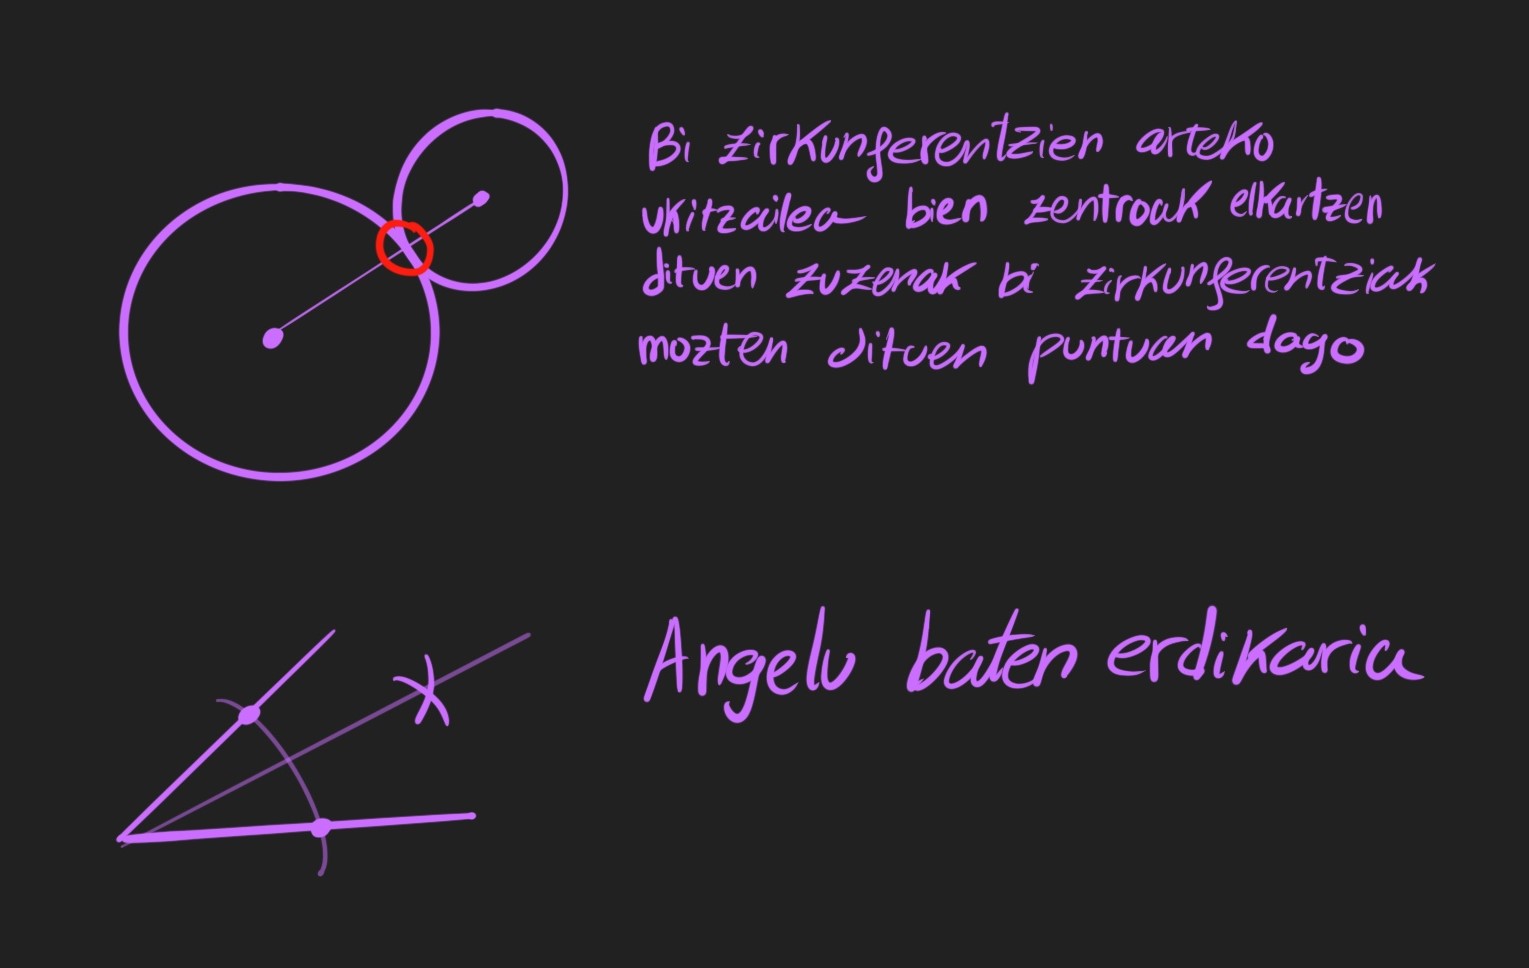 Bi zirkunferentzien arteko
ukitzailea bien zentroak elkartzen
dituen zuzenak bi zirkunferentziak
mozten dituen puntuan dago
Angelu baten erdikaria